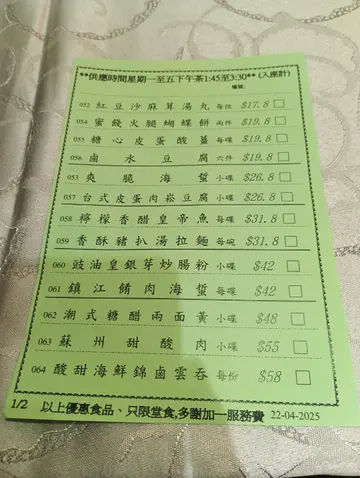 **供應時間星期一至五下午茶1:45至3:30** (入座計)
檯號:
052 紅豆沙麻茸湯丸 每位 $17.8
054 蜜餞火腿蝴蝶餅 兩件 $19.8
055 糖心皮蛋酸薑 每碟 $19.8
056 鹵水豆腐 六件 $19.8
053 爽脆海蜇 小碟 $26.8
057 台式皮蛋肉崧豆腐 小碟 $26.8
058 檸檬香醋皇帝魚 每碟 $31.8
059 香酥豬扒湯拉麵 每碗 $31.8
060 豉油皇銀芽炒腸粉 小碟 $42
061 鎮江餚肉海蜇 每碟 $42
062 潮式糖醋兩面黃 小碟 $48
063 蘇州甜酸肉 小碟 $55
064 酸甜海鮮錦鹵雲吞 每份 $58
1/2 以上優惠食品、只限堂食,多謝加一服務費 22-04-2025